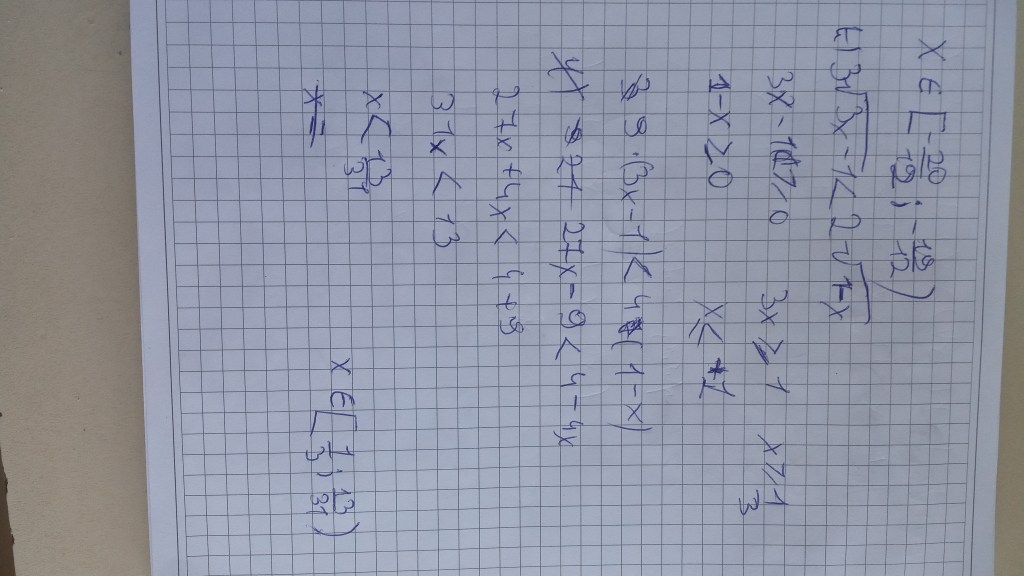 X ∈ [-20/12; -19/12)
E) 3√3x-1 < 2√1-x
3x-1 ⩾ 0 3x ⩾ 1 x ⩾ 1/3
1-x ≥ 0 x ≤ +1
9·(3x-1) < 4(1-x)
27x-9 < 4-4x
27x+4x < 4+9
31x < 13
x < 13/31
x =
X ∈ [1/3; 13/31)